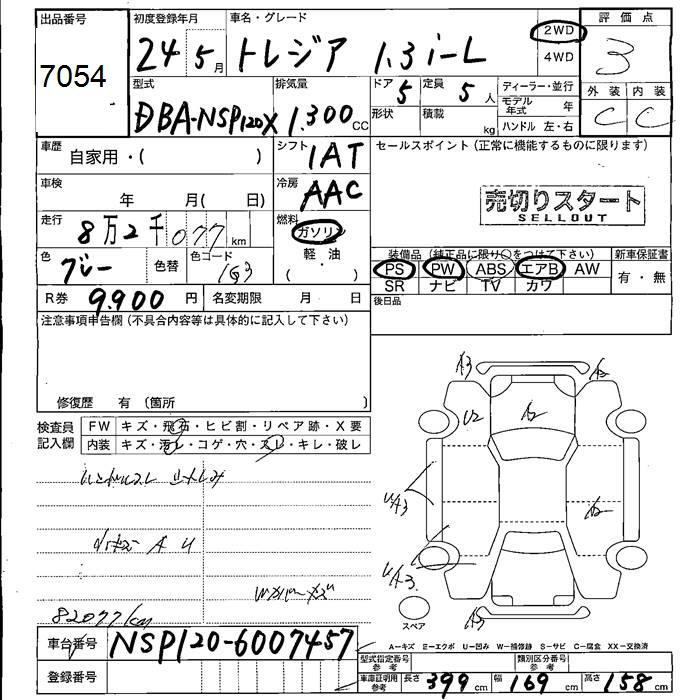 出品番号 初度登録年月 車名・グレード 2WD 評価点
7054 24 5月 トレジア 1.3 i-L 4WD 3
型式 排気量 ドア 定員 ディーラー・並行 外装 内装
DBA-NSP120X 1.300cc 5 5人 モデル年式 年 C C
形状 積載 kg ハンドル 左・右
車歴 自家用・( ) シフト 1AT セールスポイント(正常に機能するものに限ります)
車検 年 月( 日) 冷房 AAC 売切りスタート
SELLOUT
走行 8万2千077km 燃料 ガソリン
軽・油
( )
色 グレー 色替 色コード 1G3
装備品(純正品に限り○をつけて下さい) 新車保証書
PS PW ABS エアB AW 有・無
SR ナビ TV カワ
R券 9.900円 名変期限 月 日 後日品
注意事項申告欄(不具合内容等は具体的に記入して下さい)
修復歴 有(箇所 )
検査員記入欄 FW キズ・飛石・ヒビ割・リペア跡・X要
内装 キズ・汚レ・コゲ・穴・スレ・キレ・破レ
A3 A2
U2 A2
A2
A3
スペア
82077km
車台番号 NSP120-6007457
A-キズ E-エクボ U-凹み W-補修跡 S-サビ C-腐食 XX-交換済
型式指定番号 参考 類別区分番号 参考
登録番号 車庫証明用参考 長さ 399cm 幅 169cm 高さ 158cm